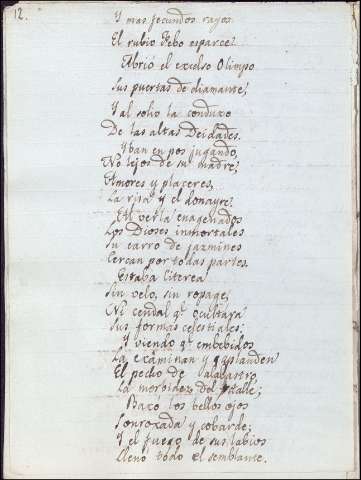 12.
Y mas fecundos rayos
El rubio Febo esparce?
Abrió el excelso Olimpo
Sus puertas de diamante;
Y al solio la conduxo
De las altas Deidades.
Yban en pos jugando,
No lejos de su madre;
Amores y placeres,
La risa y el donayre.
Al verla enagenados
Los Dioses inmortales
Su carro de jazmines
Cercan por todas partes.
Estaba Citerea
Sin velo, sin ropage,
Ni cendal q.e ocultara
Sus formas celestiales;
Y viendo q.e embebidos
La examinan y aplauden
El pecho de alabastro,
La morbidez del talle;
Baxó los bellos ojos
Sonroxada y cobarde;
Y el fuego de sus labios
Llenó todo el semblante.